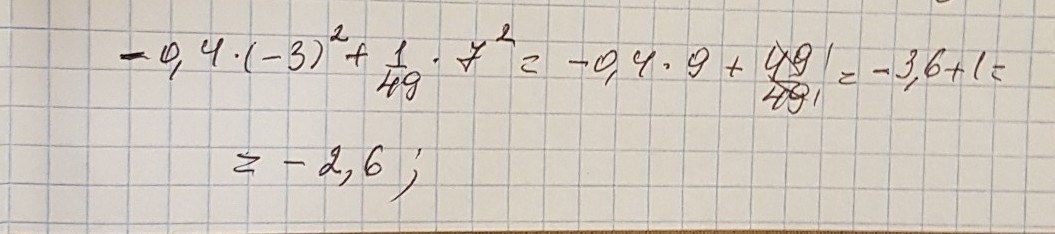 -0,4·(-3)²+1/49·7²=-0,4·9+49/49=-3,6+1=
=-2,6;